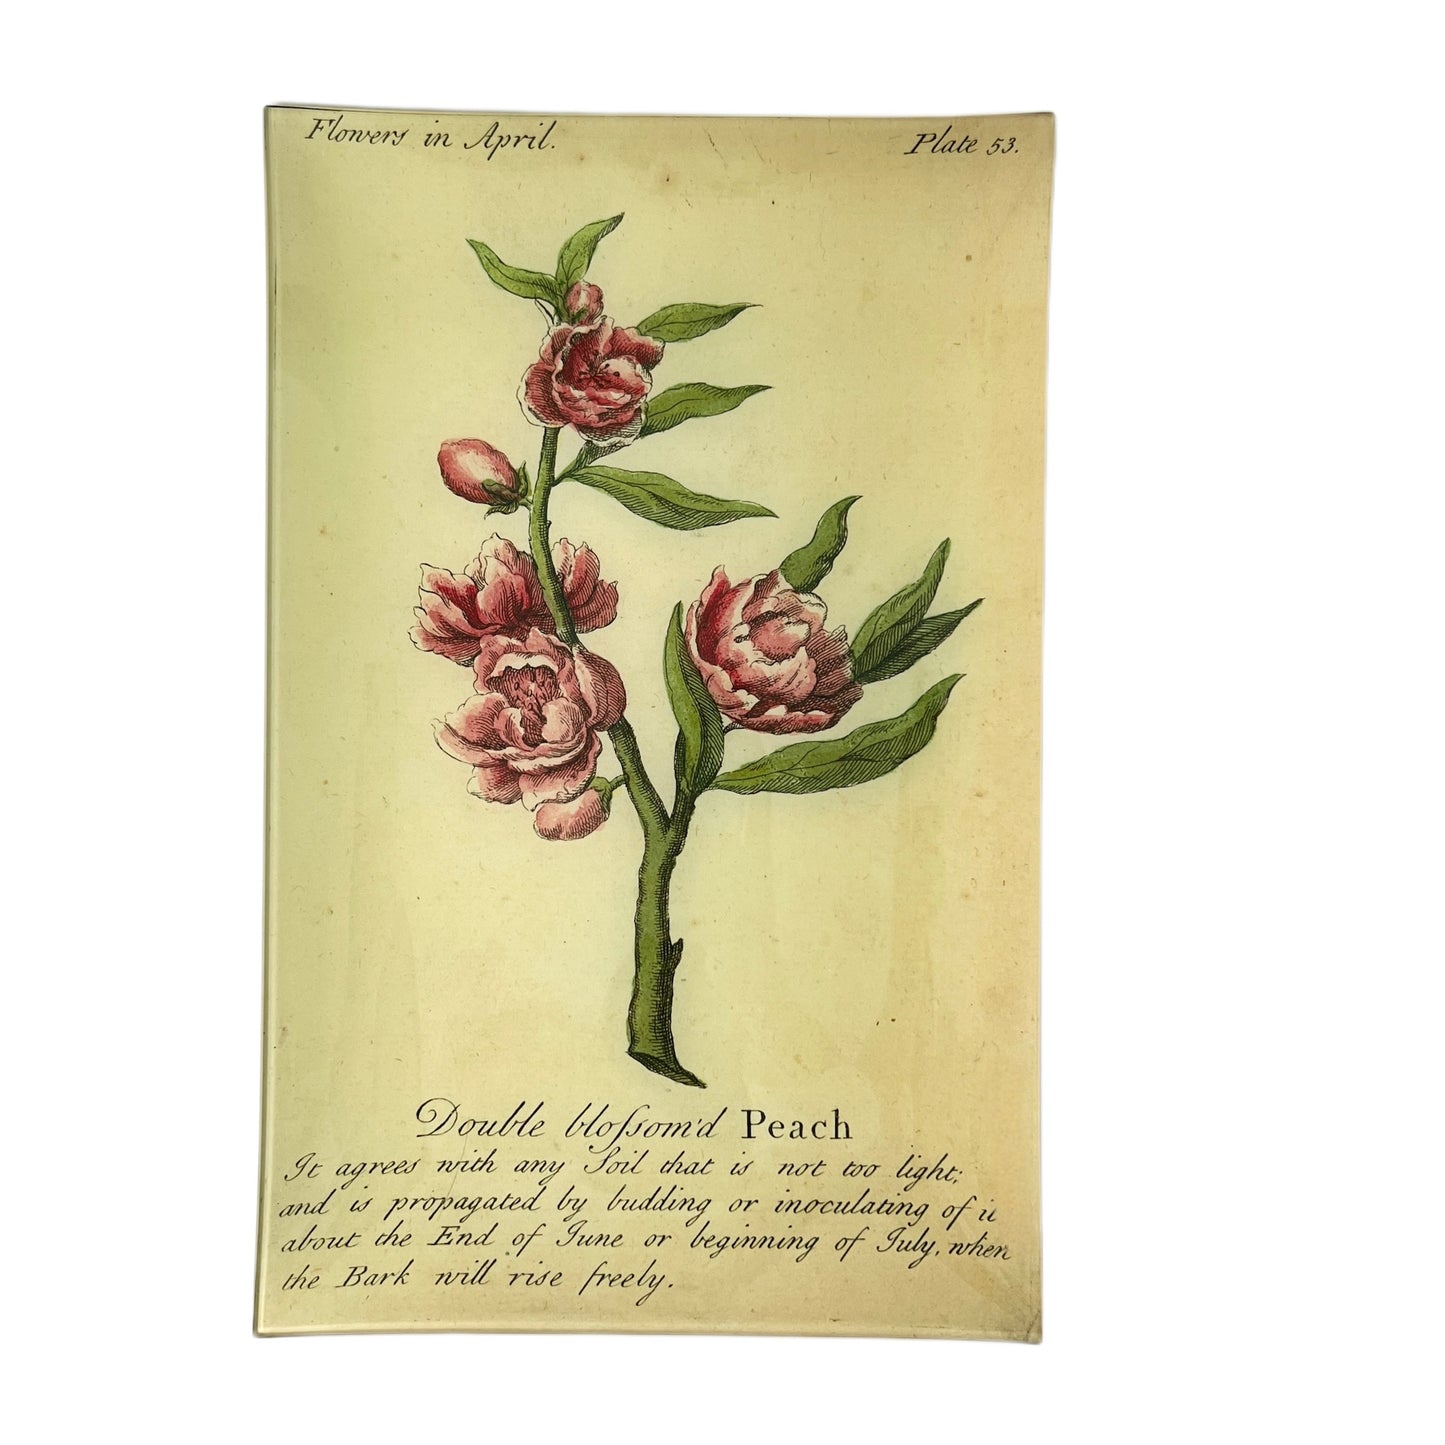 Flowers in April.
Plate 53.
Double bloſsom'd Peach
It agrees with any Soil that is not too light;
and is propagated by budding or inoculating of it
about the End of June or beginning of July, when
the Bark will rise freely.